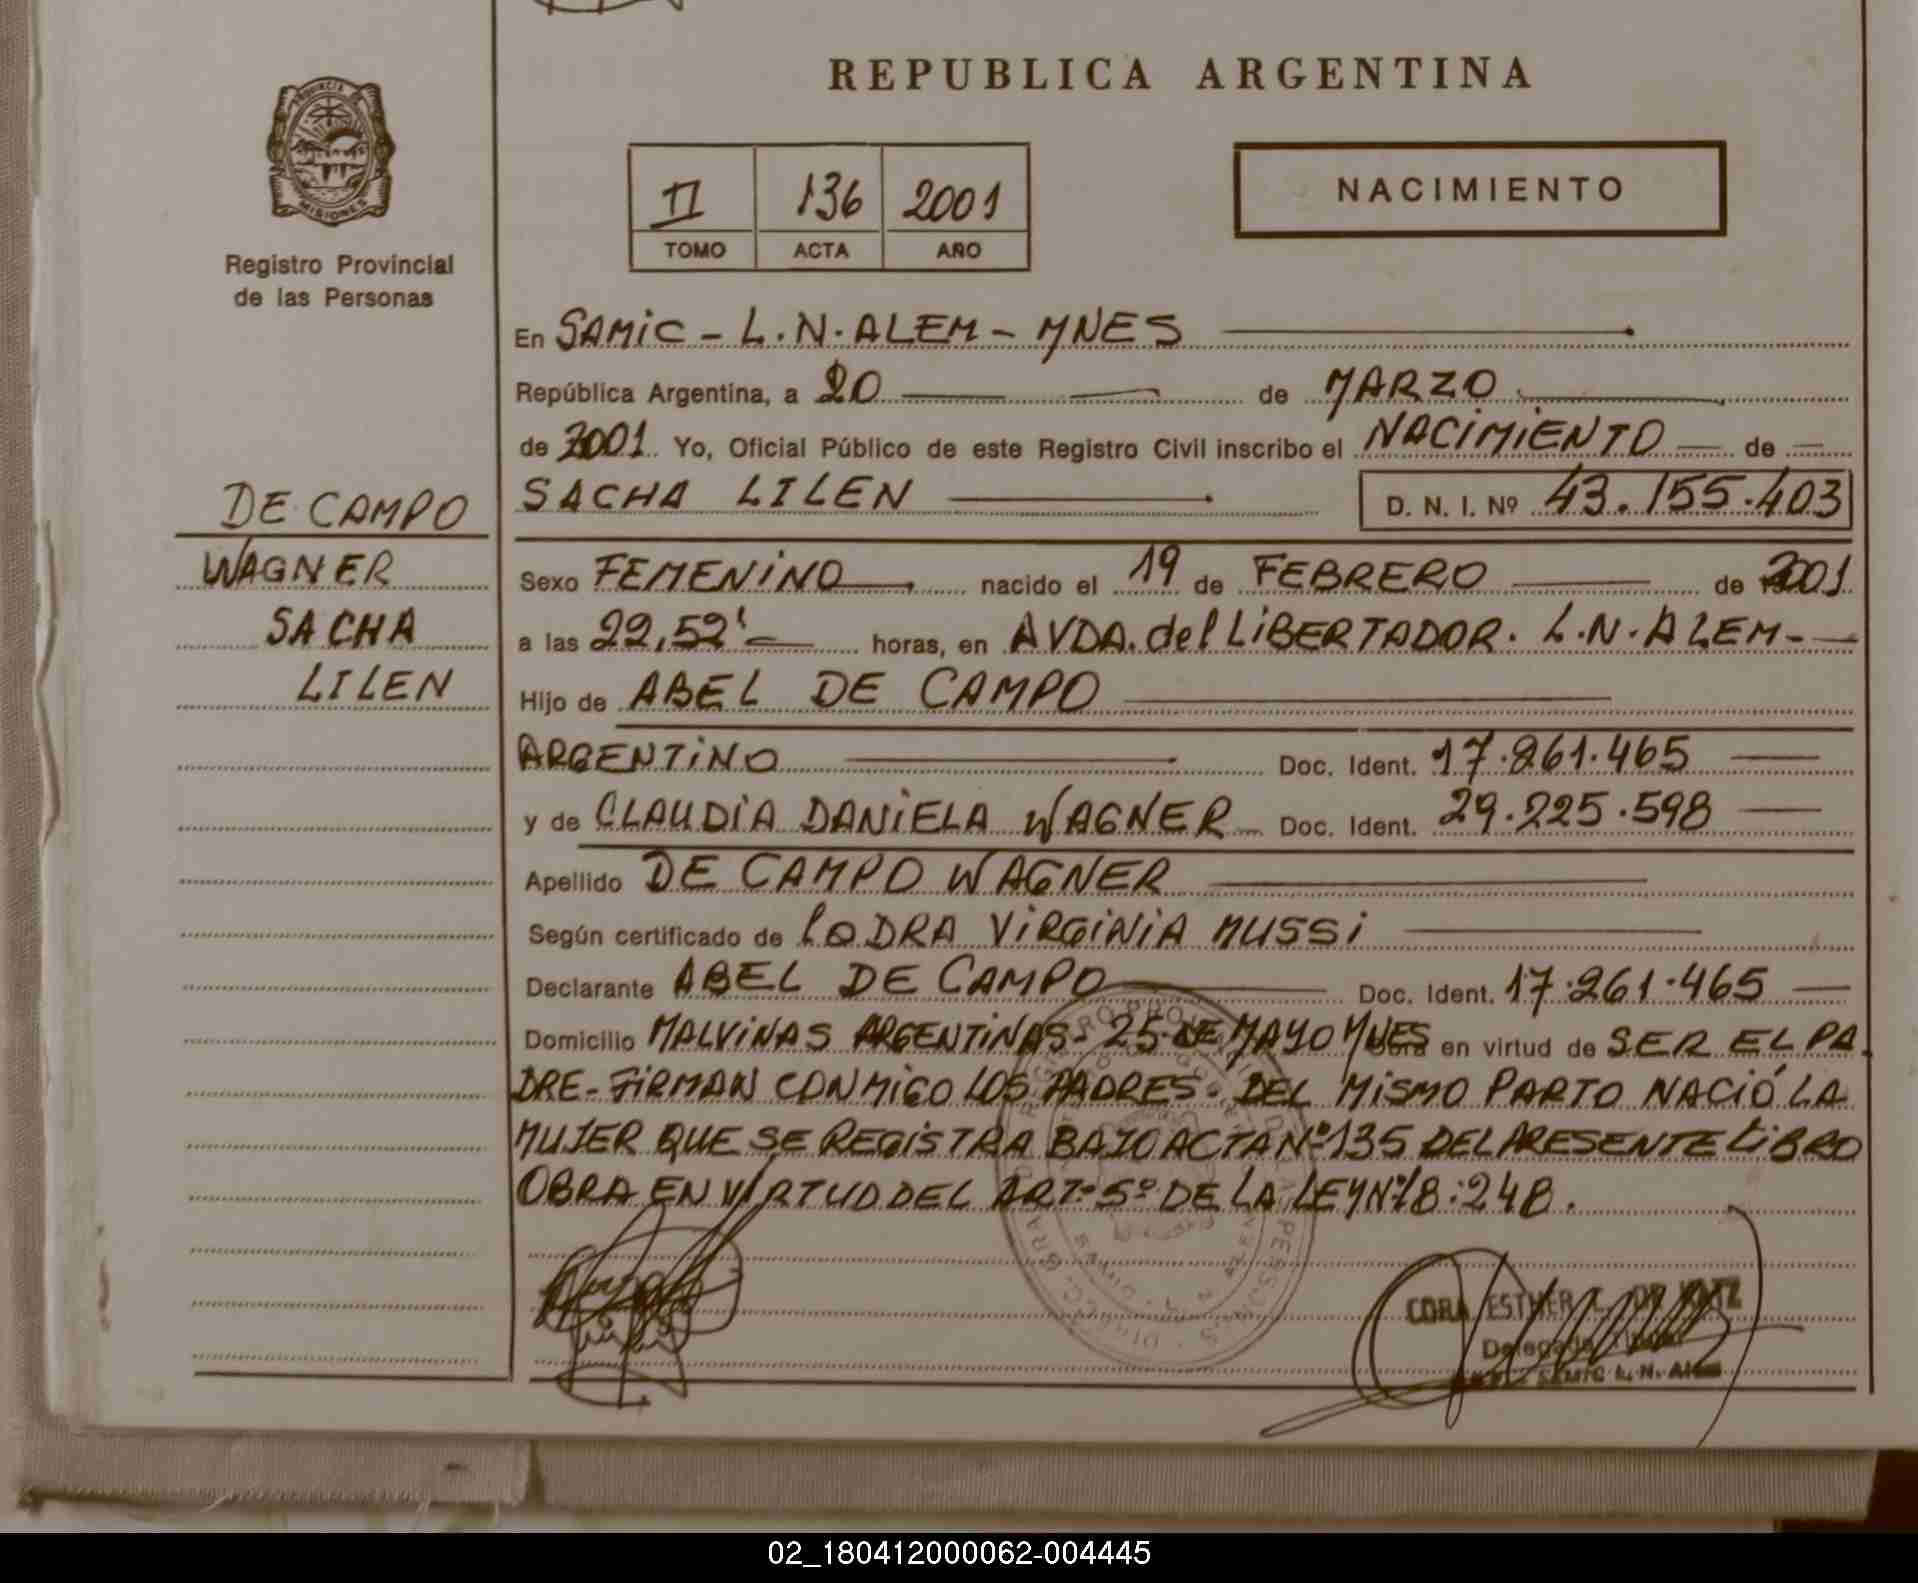 REPUBLICA ARGENTINA
PROVINCIA DE
MISIONES
Registro Provincial
de las Personas
II 136 2001
TOMO ACTA AÑO
NACIMIENTO
En SAMiC - L.N. ALEM - MNES
República Argentina, a 20 de MARZO
de 2001 Yo, Oficial Público de este Registro Civil inscribo el NACiMiENTO de
SACHA LILEN D. N. I. Nº 43.155.403
DE CAMPO
WAGNER
SACHA
LILEN
Sexo FEMENiNO nacido el 19 de FEBRERO de 2001
a las 22,52' horas, en AVDA. del LiBERTADOR. L.N. ALEM-
Hijo de ABEL DE CAMPO
ARGENTiNO Doc. Ident. 17.261.465
y de CLAUDiA DANiELA WAGNER Doc. Ident. 29.225.598
Apellido DE CAMPO WAGNER
Según certificado de LA DRA ViRGiNiA MUSSi
Declarante ABEL DE CAMPO Doc. Ident. 17.261.465
Domicilio MALViNAS ARGENTiNAS- 25 DE MAYO MNES en virtud de SER EL PA
DRE - FiRMAN CONMiGO LOS PADRES. DEL MiSMO PARTO NACiÓ LA
MUJER QUE SE REGiSTRA BAJO ACTA Nº 135 DEL PRESENTE LiBRO
OBRA EN ViRTUD DEL ARTº 5º DE LA LEY Nº 18.248.
CORA ESTHER
SAMIC L. N. Alem
02_180412000062-004445